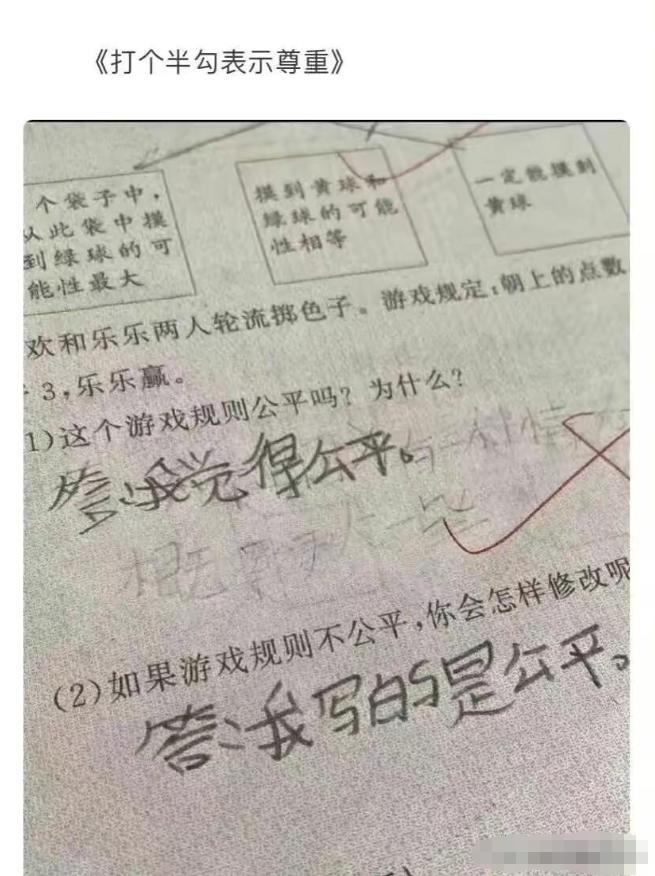 《打个半勾表示尊重》
个袋子中，
从此袋中摸
到绿球的可
能性最大
摸到黄球和
绿球的可能
性相等
一定能摸到
黄球
欢和乐乐两人轮流掷色子。游戏规定：朝上的点数
3，乐乐赢。
1）这个游戏规则公平吗？为什么？
答：我觉得公平。
（2）如果游戏规则不公平，你会怎样修改呢
答：我写的是公平。